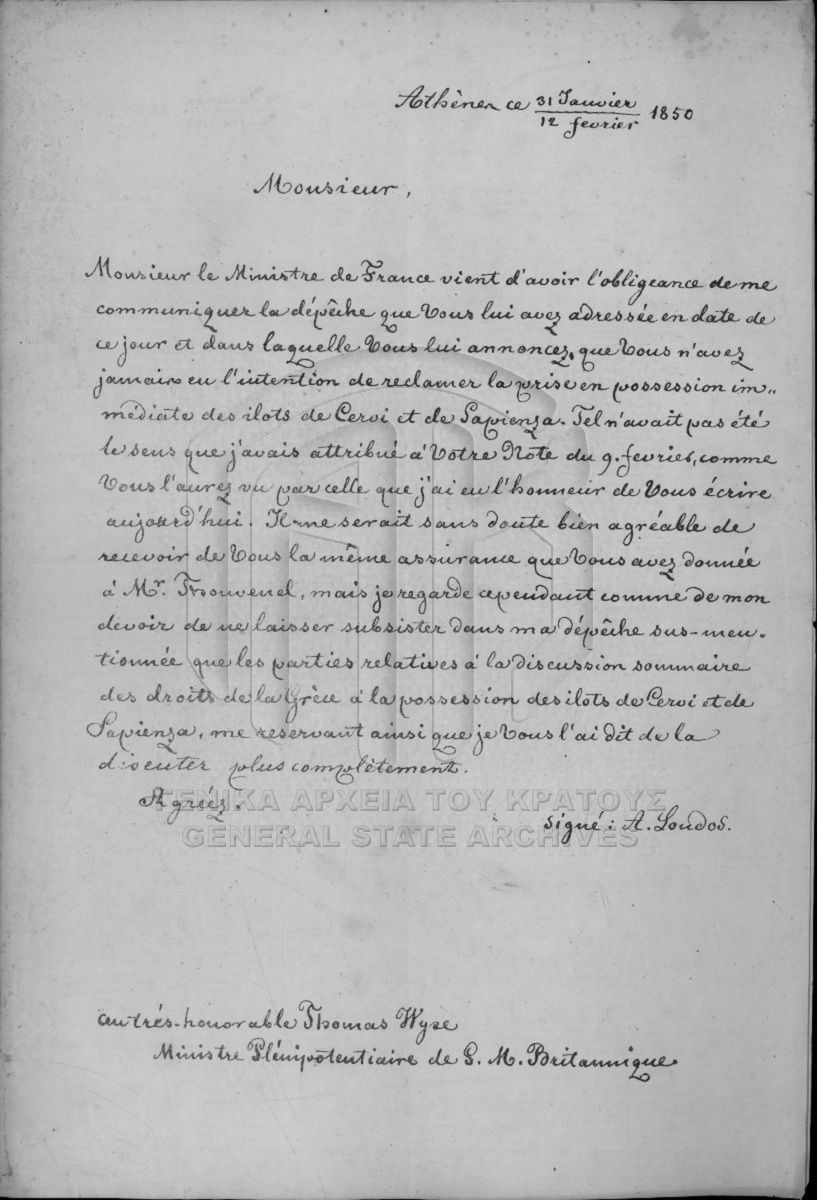 Athènes ce 31 Janvier / 12 fevrier 1850
Monsieur,
Monsieur le Ministre de France vient d'avoir l'obligeance de me
communiquer la dépêche que Vous lui avez adressée en date de
ce jour et dans laquelle Vous lui annoncez, que Vous n'avez
jamais eu l'intention de reclamer la prise en possession im-
médiate des ilots de Cervi et de Sapienza. Tel n'avait pas été
le sens que j'avais attribué à Votre Note du 9. fevrier, comme
Vous l'aurez vu par celle que j'ai eu l'honneur de Vous écrire
aujourd'hui. Il me serait sans doute bien agréable de
recevoir de Vous la même assurance que Vous avez donnée
à Mr. Thouvenel, mais je regarde cependant comme de mon
devoir de ne laisser subsister dans ma dépêche sus-men-
tionnée que les parties relatives à la discussion sommaire
des droits de la Grèce à la possession des ilots de Cervi et de
Sapienza, me reservant ainsi que je Vous l'ai dit de la
discuter plus complètement.
Agréez.
signé: A. Londos.
ΓΕΝΙΚΑ ΑΡΧΕΙΑ ΤΟΥ ΚΡΑΤΟΥΣ
GENERAL STATE ARCHIVES
au trés-honorable Thomas Wyse
Ministre Plénipotentiaire de S. M. Britannique